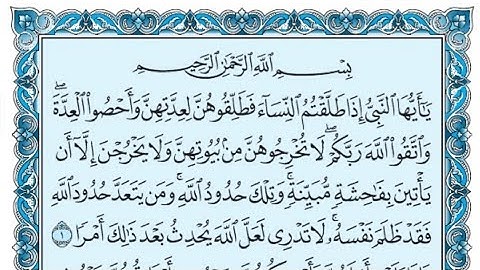 بِسْمِ اللَّهِ الرَّحْمَٰنِ الرَّحِيمِ
يَٰٓأَيُّهَا النَّبِيُّ إِذَا طَلَّقْتُمُ النِّسَآءَ فَطَلِّقُوهُنَّ لِعِدَّتِهِنَّ وَأَحْصُوا الْعِدَّةَ ۖ
وَاتَّقُوا اللَّهَ رَبَّكُمْ ۖ لَا تُخْرِجُوهُنَّ مِنۢ بُيُوتِهِنَّ وَلَا يَخْرُجْنَ إِلَّآ أَن
يَأْتِينَ بِفَٰحِشَةٍ مُّبَيِّنَةٍ ۚ وَتِلْكَ حُدُودُ اللَّهِ ۚ وَمَن يَتَعَدَّ حُدُودَ اللَّهِ
فَقَدْ ظَلَمَ نَفْسَهُۥ ۚ لَا تَدْرِى لَعَلَّ اللَّهَ يُحْدِثُ بَعْدَ ذَٰلِكَ أَمْرًا ١